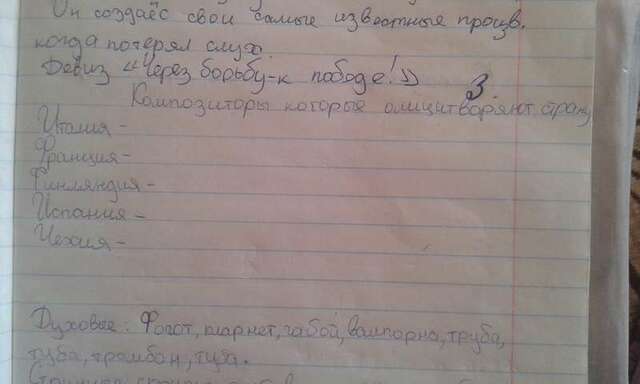 Он создаёс свои самые известные произв.
когда потерял слух
Девиз "Через борьбу-к пабоде!"
3
Композиторы которые олицитворяют страну
Италия-
Франция-
Финляндия-
Испания-
Чехия-
Духовые: Фагот, кларнет, габой, валторна, труба,
туба, тромбон, туба.